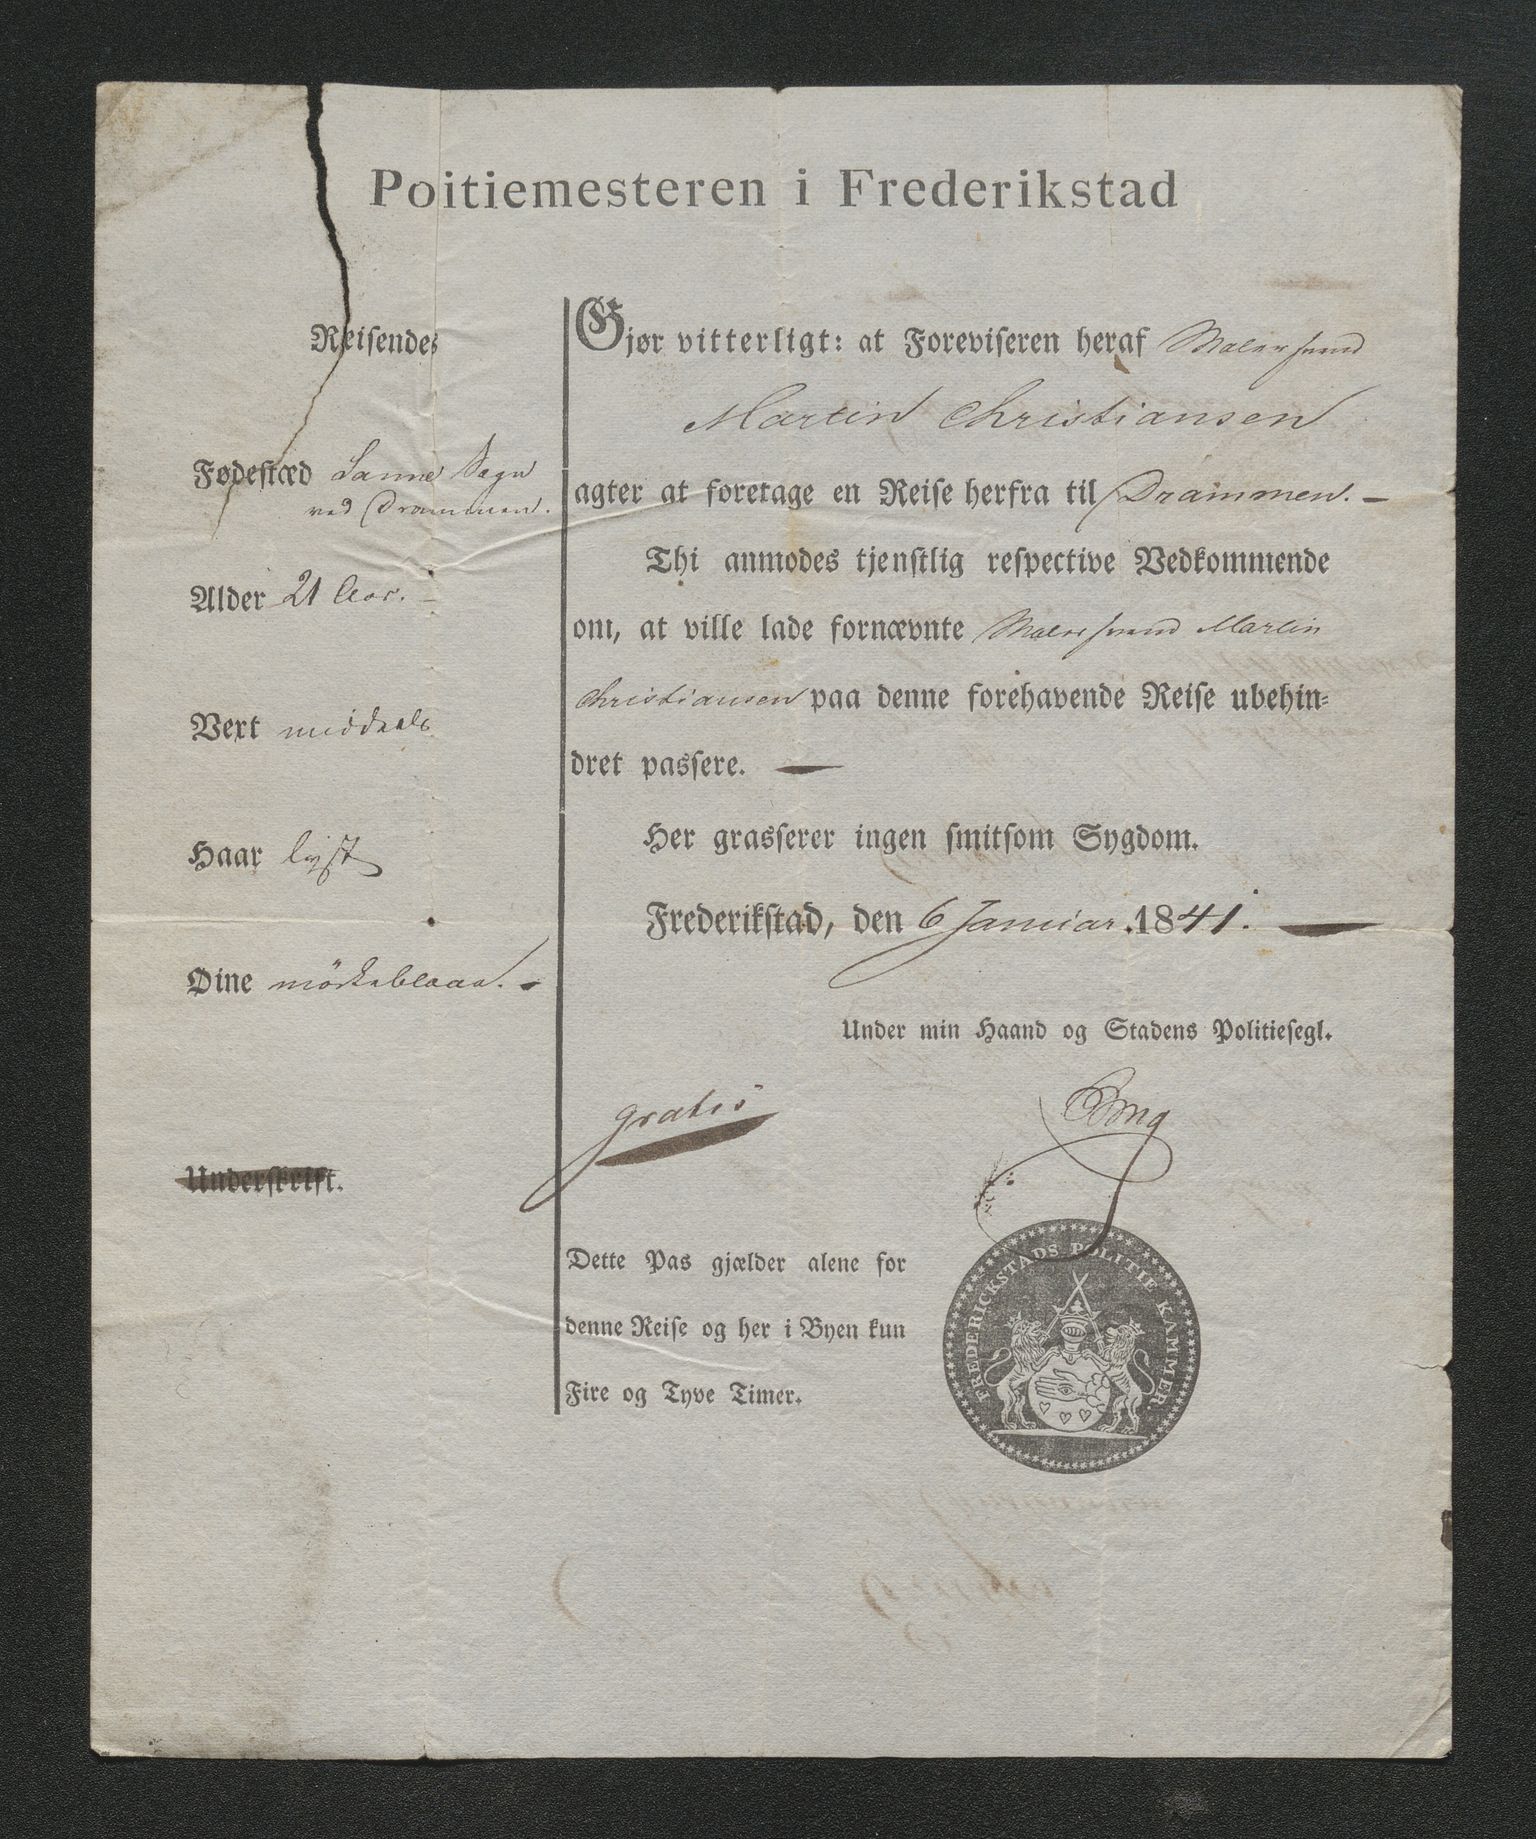 Poitiemesteren i Frederikstad
Reisendes
Fødestæd Sanne Sogn
ved Drammen.
Alder 21 Aar.
Vext middels
Haar lyst
Øine mörkeblaaa.
Underskrift.
Gjør vitterligt: at Foreviseren heraf Malersvend
Martin Christiansen
agter at foretage en Reise herfra til Drammen.
Thi anmodes tjenstlig respective Vedkommende
om, at ville lade fornævnte Malersvend Martin
Christiansen paa denne forehavende Reise ubehin=
dret passere.
Her grasserer ingen smitsom Sygdom.
Frederikstad, den 6 Januar. 1841.
Under min Haand og Stadens Politiesegl.
gratis
Dette Pas gjælder alene for
denne Reise og her i Byen kun
Fire og Tyve Timer.
FREDERICKSTADS POLITIE KAMMER.